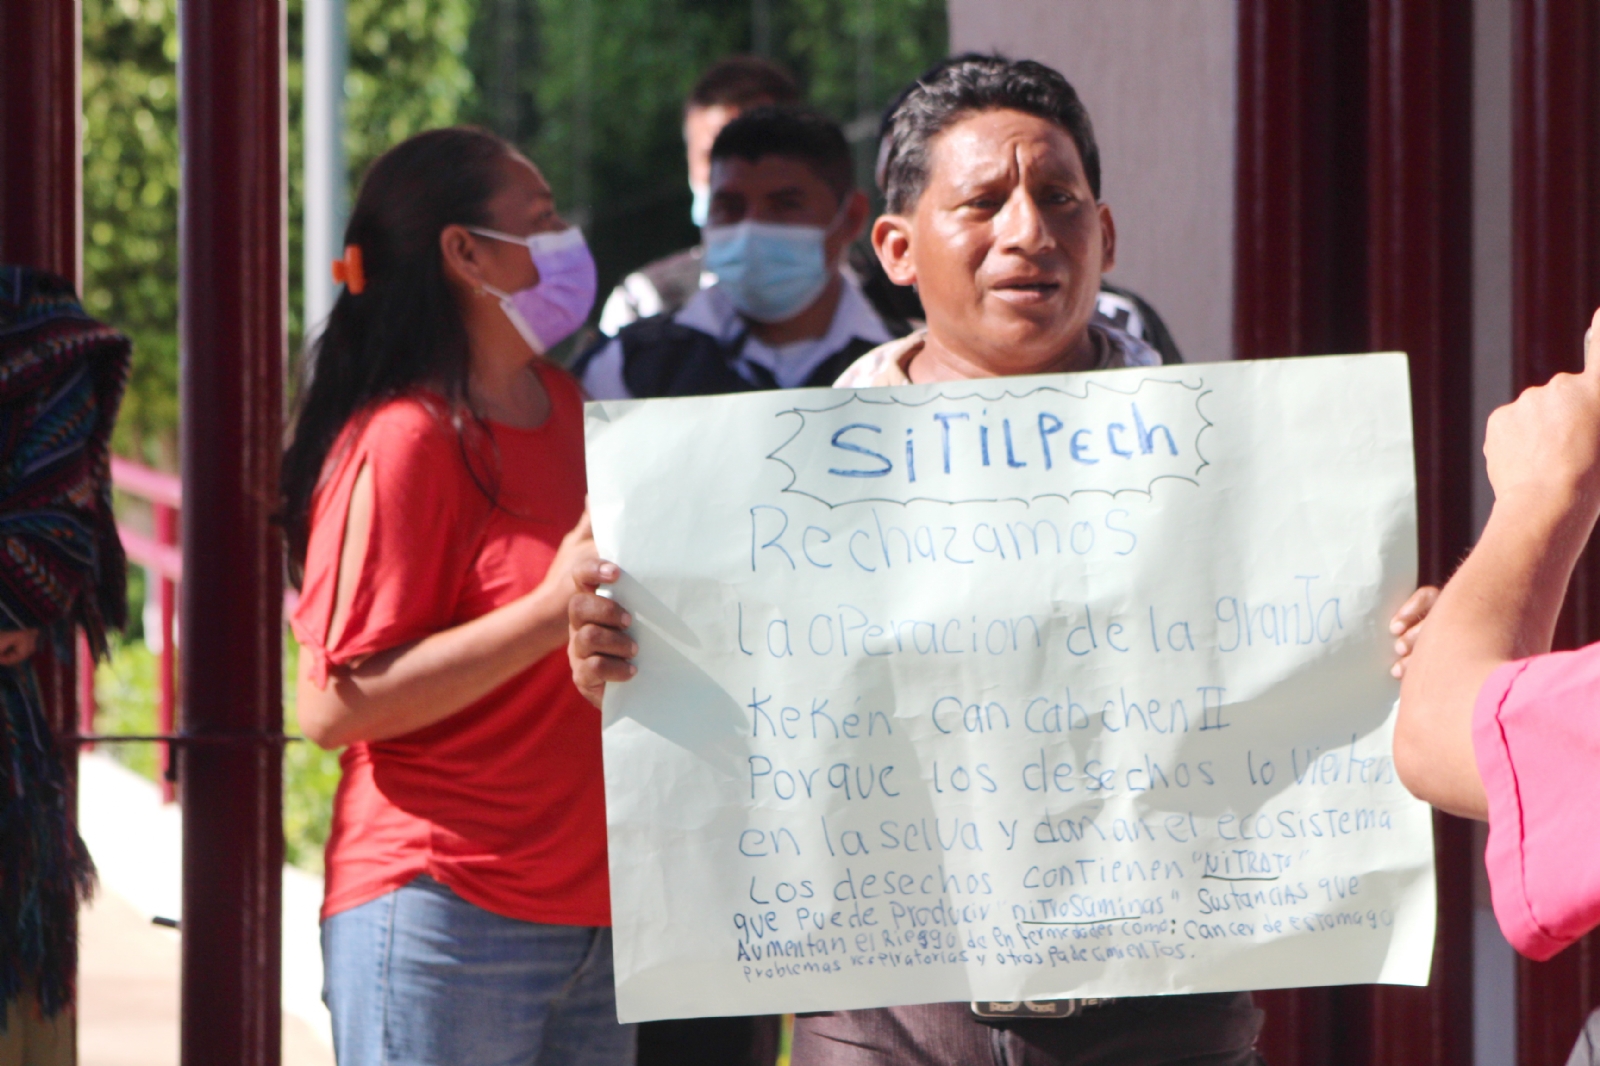 SiTiLPEch
Rechazamos
La operacion de la granJa
KeKén Can cab chen II
Porque los desechos lo vierten
en la selva y dañan el ecosistema
Los desechos contienen "NiTRATo"
que puede Producir "niTroSaminas" SustanciAs que
Aumentan el Riesgo de enfermedades como: cancer de estomago
Problemas respiratorias y otros padecimientos.